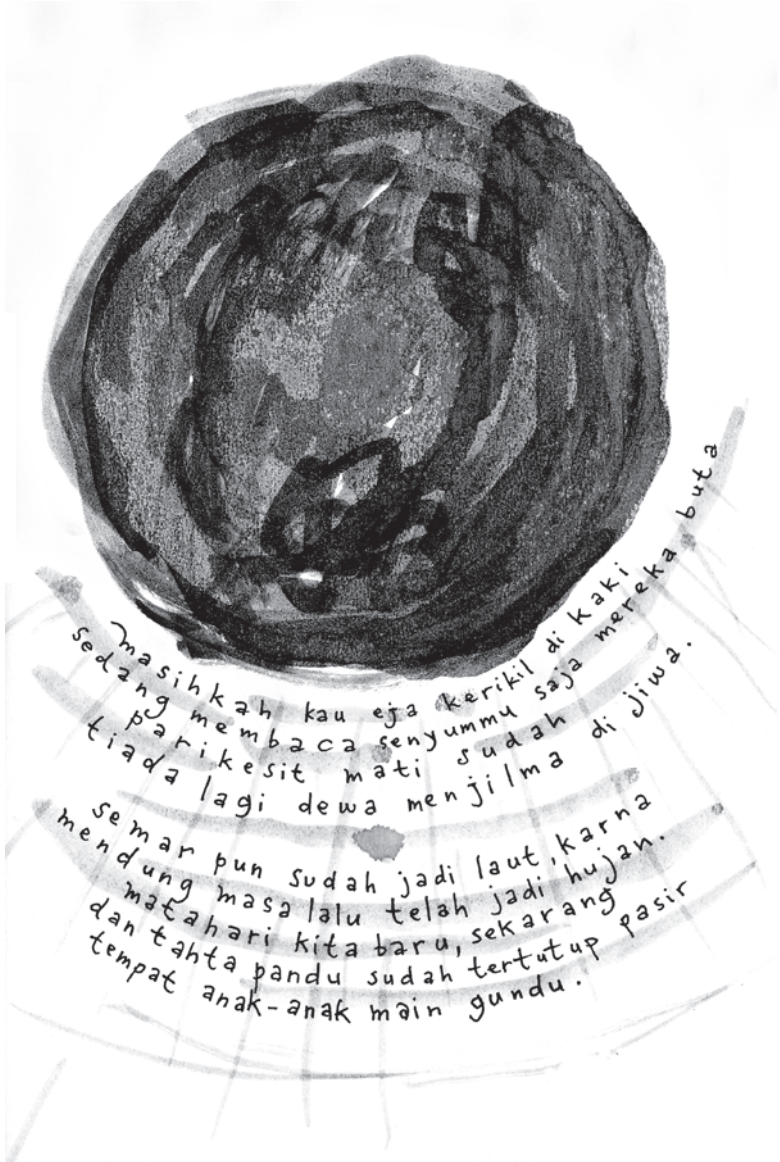 masihkah kau eja kerikil di kaki
sedang membaca senyummu saja mereka buta
parikesit mati sudah
tiada lagi dewa menjilma di jiwa.
semar pun sudah jadi laut, karna
mendung masa lalu telah jadi hujan.
matahari kita baru, sekarang
dan tahta pandu sudah tertutup pasir
tempat anak-anak main gundu.